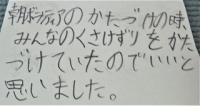 朝ボランティアのかたづけの時
みんなのくさけずりをかた
づけていたのでいいと
思いました。